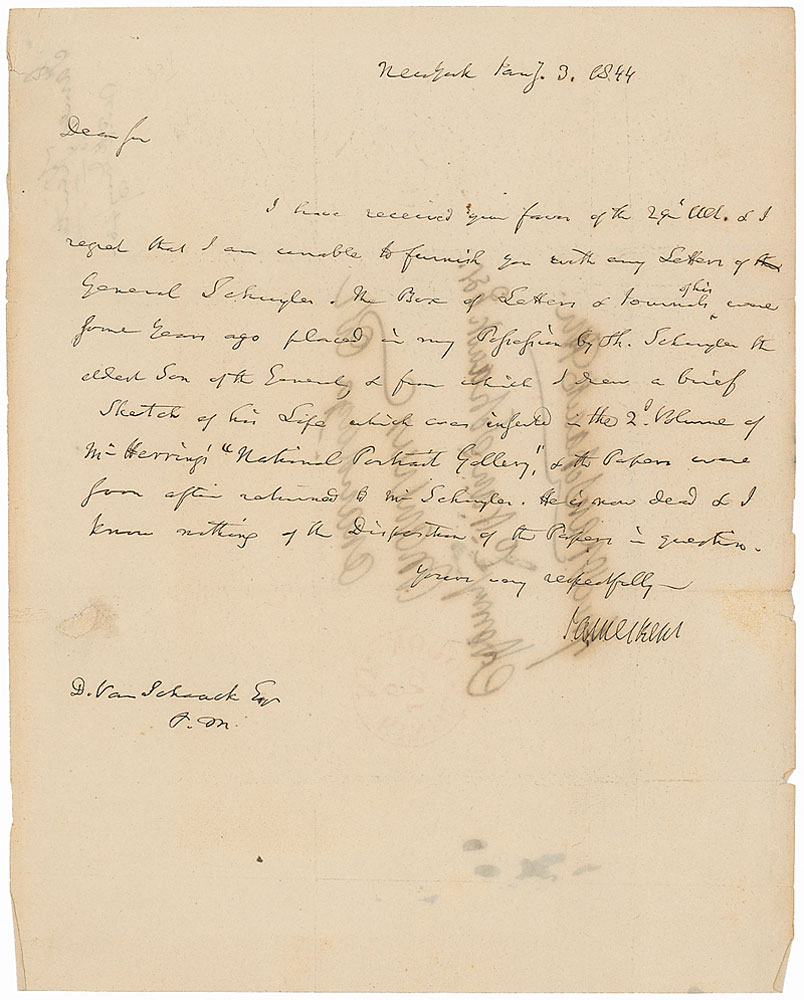 New York Jany. 3. 1844
Dear Sir
I have received your favor of the 29th Ult. & I
regret that I am unable to furnish you with any Letters of the
General Schuyler. The Box of Letters & Journals of his were
some Years ago placed in my Possession by Ph. Schuyler the
eldest Son of the General, & from which I drew a brief
Sketch of his Life which was inserted in the 2d. Volume of
Mr Herring's "National Portrait Gallery", & the Papers were
soon after returned to Mr Schuyler. He is now dead & I
know nothing of the Disposition of the Papers in question.
Yours very respectfully
James Kent
D. Van Schaack Esqr
P. M.